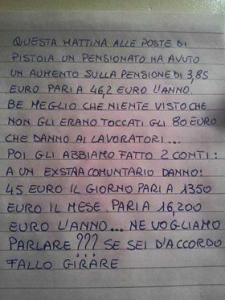 QUESTA MATTINA ALLE POSTE DI
PISTOIA UN PENSIONATO HA AVUTO
UN AUMENTO SULLA PENSIONE DI 3,85
EURO PARI A 46,2 EURO L'ANNO.
BE MEGLIO CHE NIENTE VISTO CHE
NON GLI ERANO TOCCATI GLI 80 EURO
CHE DANNO AI LAVORATORI...
POI GLI ABBIAMO FATTO 2 CONTI:
A UN EXSTRACOMUNTARIO DANNO:
45 EURO IL GIORNO PARI A 1350
EURO IL MESE PARI A 16,200
EURO L'ANNO... NE VOGLIAMO
PARLARE ??? SE SEI D'ACCORDO
FALLO GIRARE